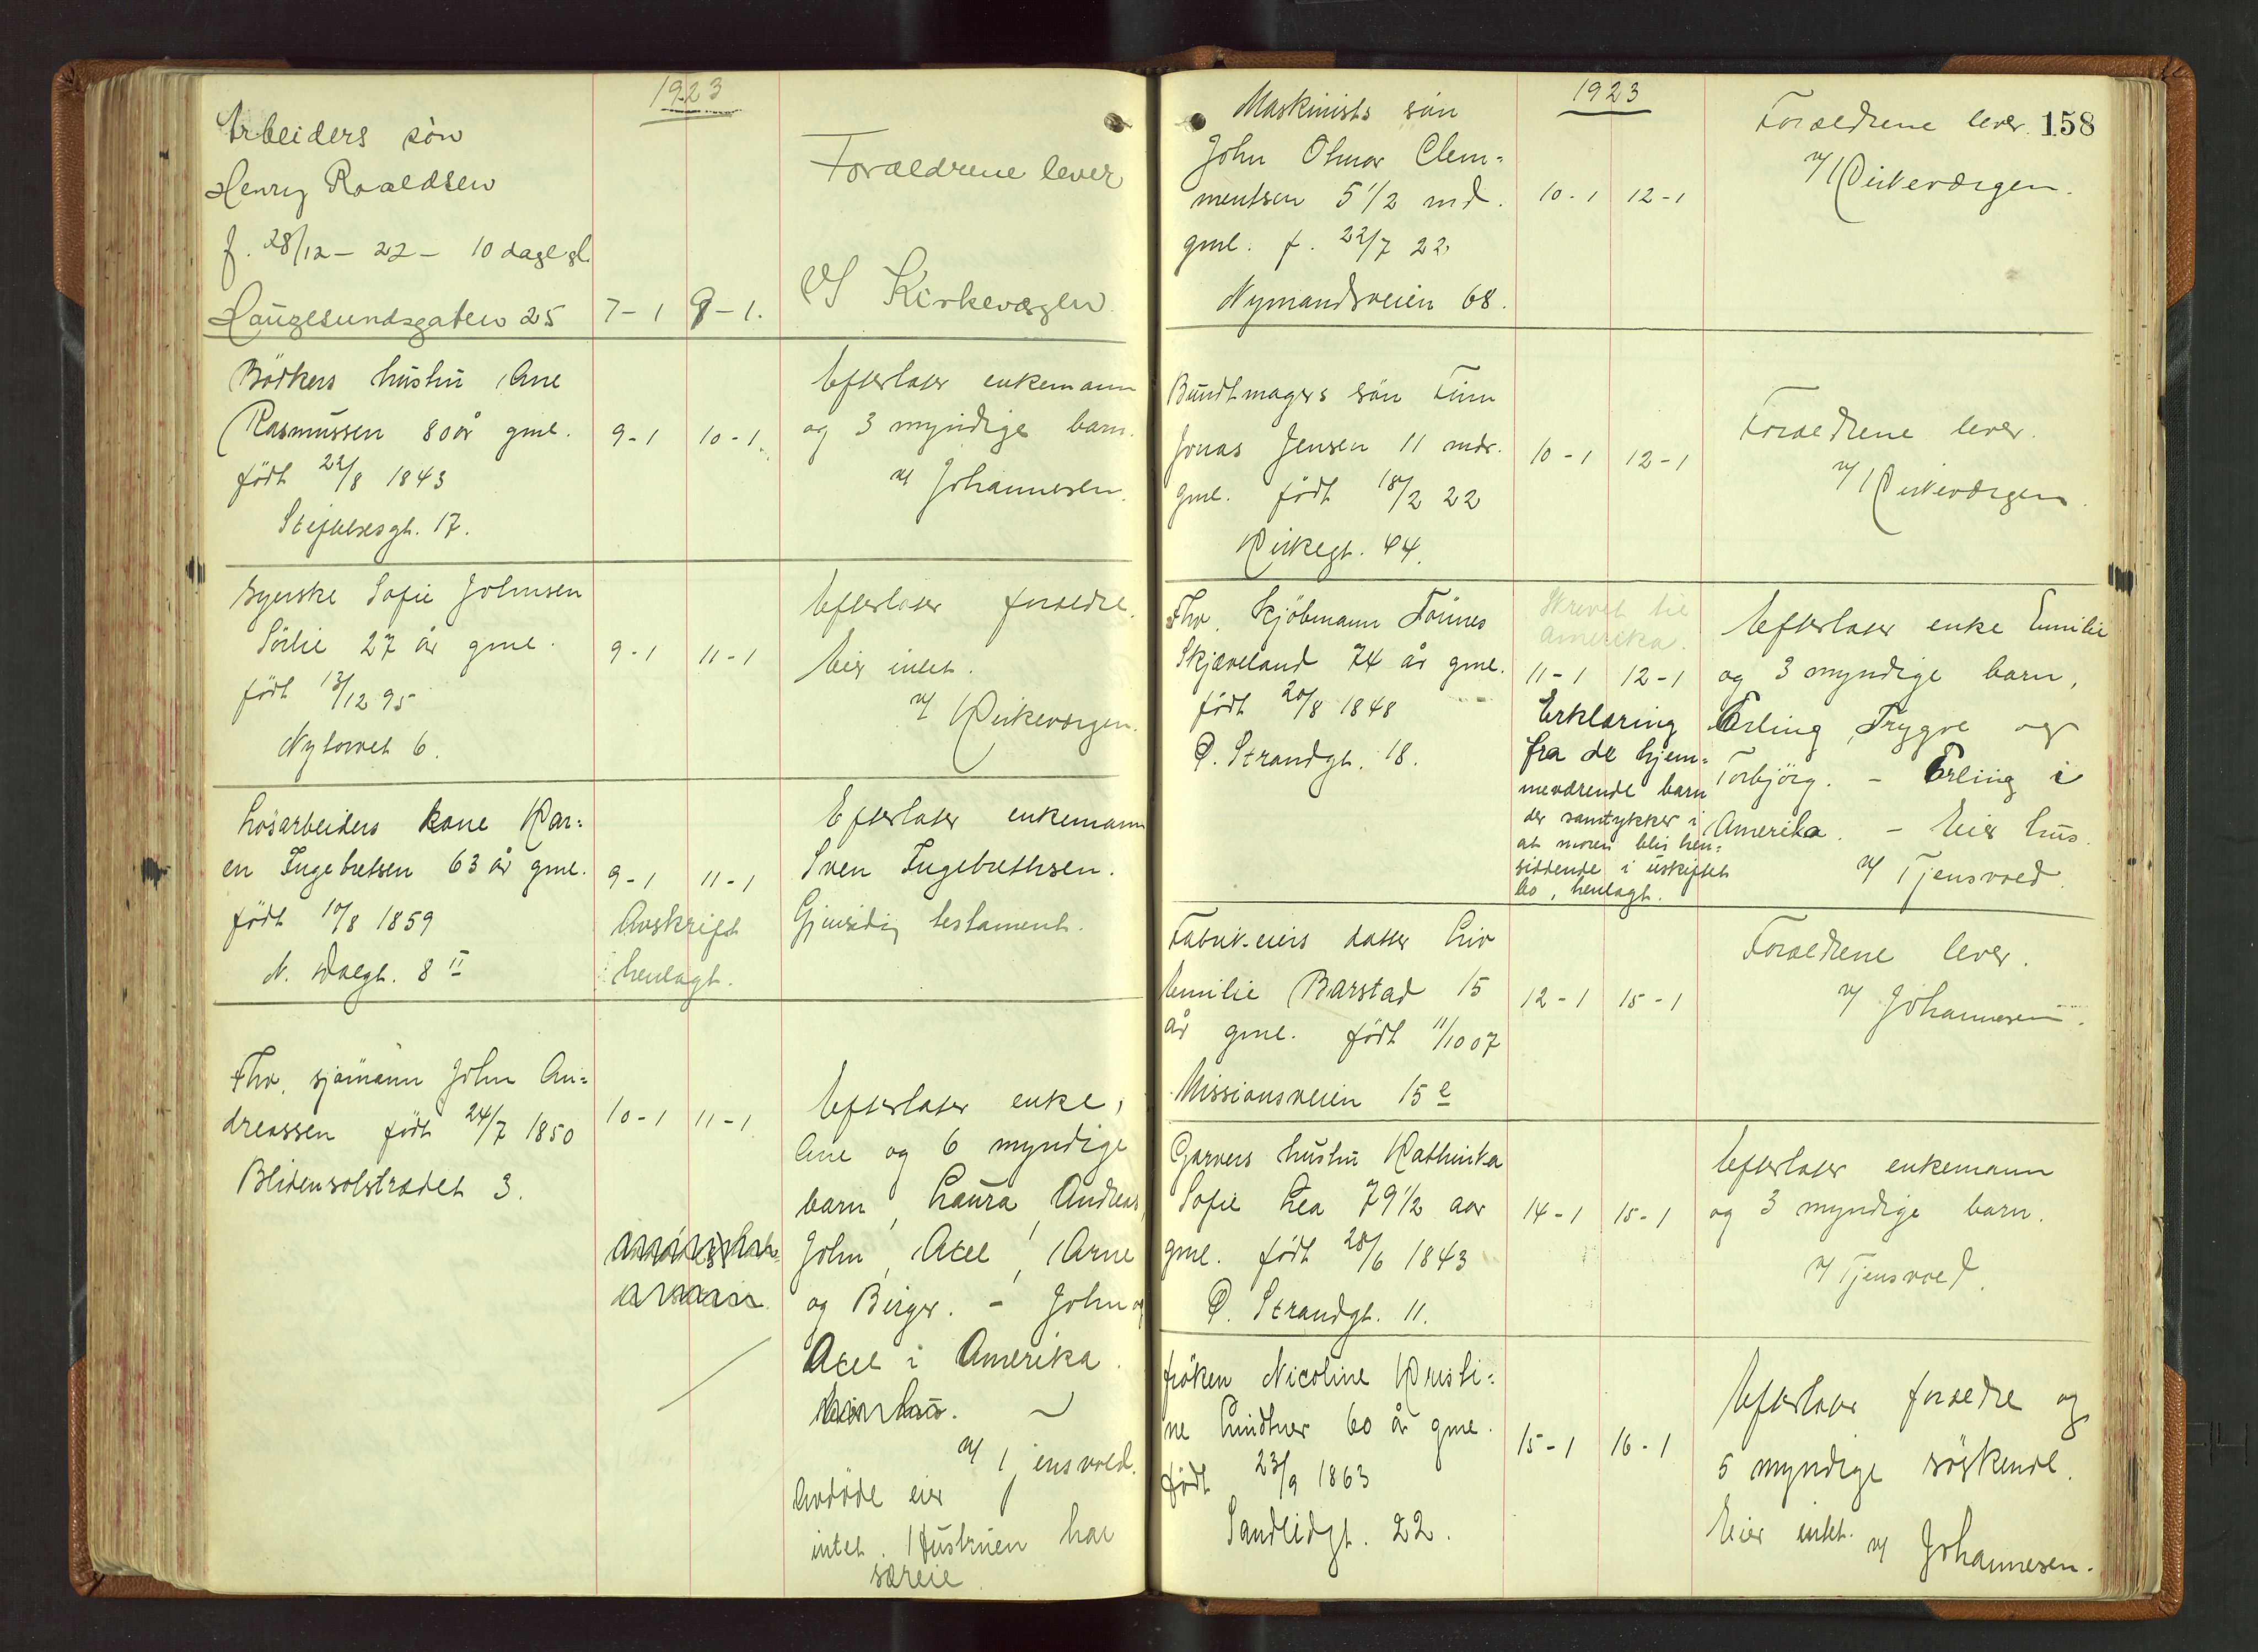 1923
Arbeiders søn
Henry Roaldsen
f. 28/12 - 22 - 10 dage gl.
Haugesundsgaten 25
7-1 9-1.
Forældrene lever
v/ Kirkevægen
Bödkers hustru Ane
Rasmussen 80 år gml.
født 22/8 1843
Stiftelsesgt. 17.
9-1 10-1.
Efterlater enkemann
og 3 myndige barn.
v/ Johannesen.
Syerske Sofie Johnsen
Sörlie 27 år gml.
født 13/12 95
Nytorvet 6.
9-1 11-1
Efterlater foreldre.
Eier intet.
v/ Kirkeværgen.
Løsarbeiders kone Kar=
en Ingebretsen 63 år gml.
født 10/8 1859
N. Dalgt. 8 II
9-1 11-1
Avskrift
henlagt.
Efterlater enkemann
Sven Ingebrethsen.
Gjensidig testament.
Fhv. sjømann John An=
dreassen født 24/7 1850
Blidensolstrædet 3.
10-1 11-1
Efterlater enke,
Ane og 6 myndige
barn, Laura, Andreas,
John, Axel, Arne
og Birger. - John og
Axel i Amerika.
v/ Tjensvold.
Avdøde eier
intet. Hustruen har
særeie.
158
1923
Maskinists søn
John Olmar Clem=
mentsen 5 1/2 md.
gml. f. 22/7 22
Nymandsveien 68.
10-1 12-1
Forældrene lever.
v/ Kirkeværgen.
Bundtmagers søn Finn
Jonas Jensen 11 mdr.
gml. født 18/2 22
Kirkegt. 44.
10-1 12-1
Foreldrene lever.
v/ Kirkeværgen.
Fhv. Kjøbmann Tønnes
Skjæveland 74 år gml.
født 20/8 1848
Ø. Strandgt. 18.
Skrevet til
Amerika.
11-1 12-1
Erklæring
fra de hjem=
meværende barn
der samtykker i
at moren blir hen=
siddende i uskiftet
bo, henlagt.
Efterlater enke Emilie
og 3 myndige barn,
Erling, Trygve og
Torbjörg. - Erling i
Amerika. - Eier hus.
v/ Tjensvold.
Fabrik-eiers datter Liv
Emilie Barstad 15
år gml. født 11/10 07
Missionsveien 15 e
12-1 15-1
Foreldrene lever.
v/ Johannesen.
Garvers hustru Kathinka
Sofie Lea 79 1/2 aar
gml. født 28/6 1843
Ø. Strandgt. 11.
14-1 15-1
Efterlater enkemann
og 3 myndige barn.
v/ Tjensvold.
Frøken Nicoline Kristi=
ne Lindtner 60 år gml.
født 23/9 1863
Sandeidgt. 22.
15-1 16-1
Efterlater foreldre og
5 myndige søskende.
Eier intet. v/ Johannesen.